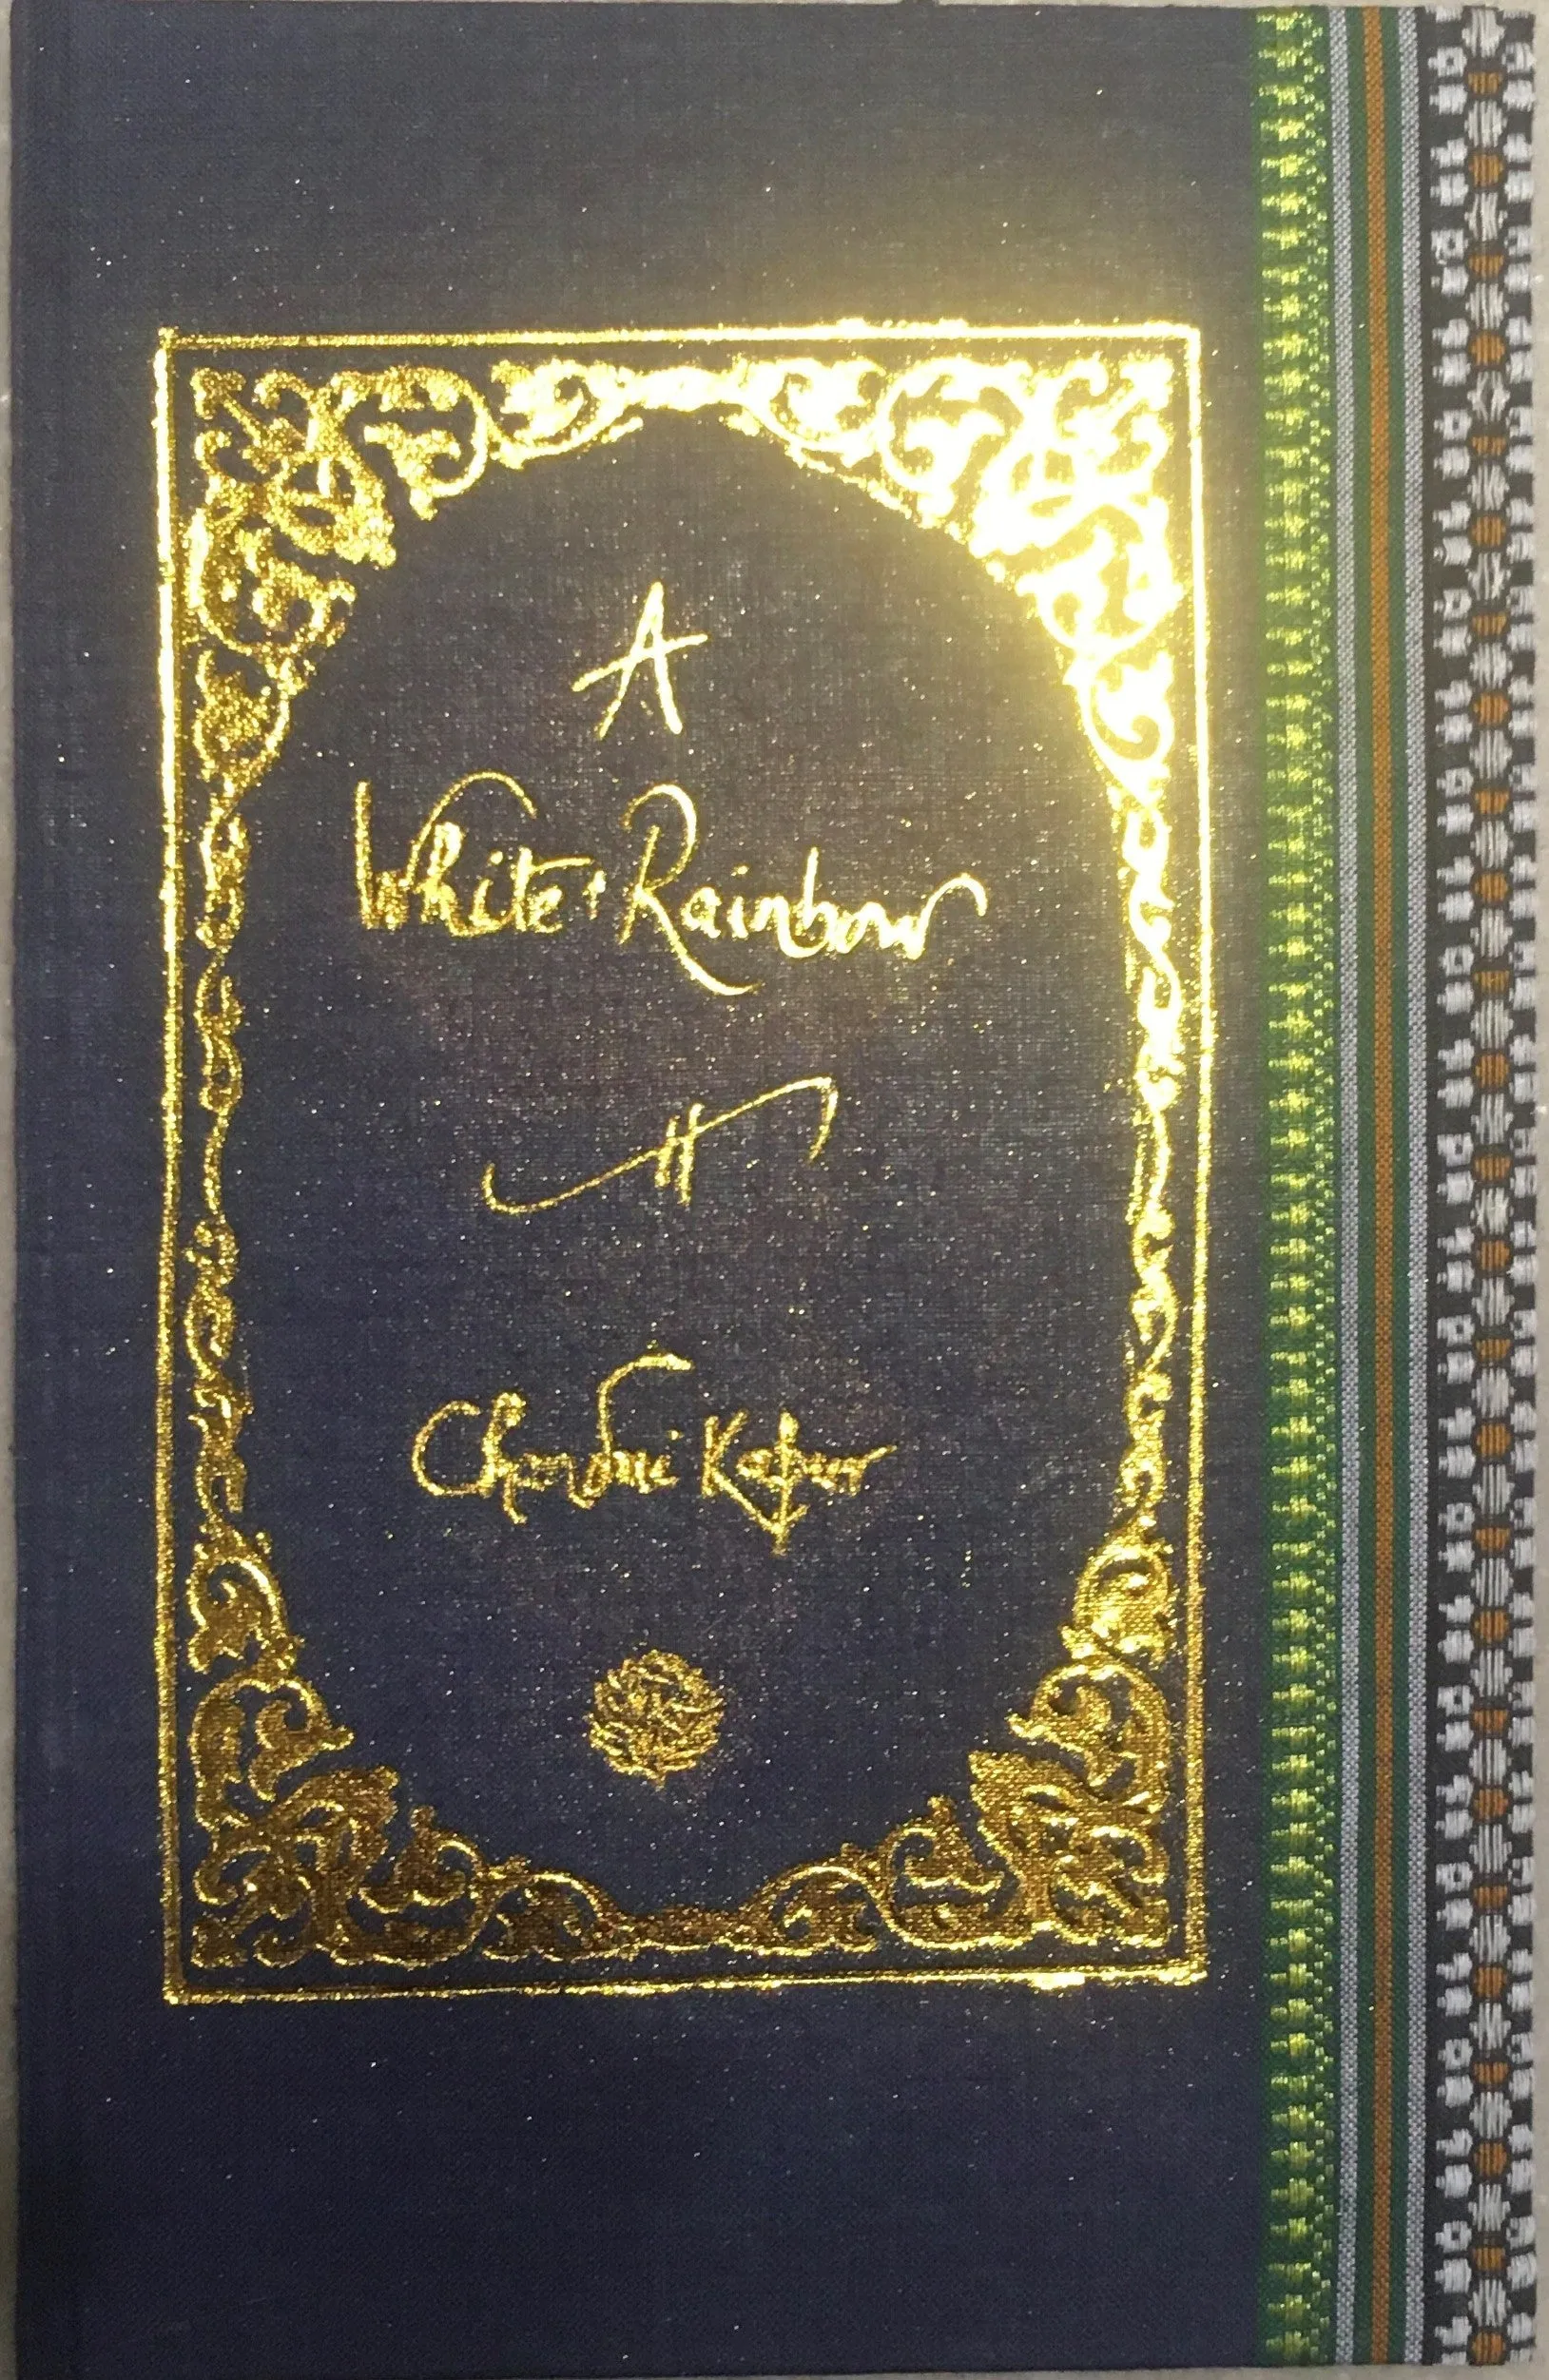 A
White Rainbow
Chandni Kapur